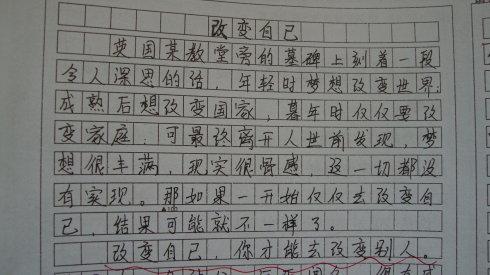 改变自己
英国某教堂旁的墓碑上刻着一段
令人深思的话，年轻时梦想改变世界；
成熟后想改变国家，暮年时仅仅要改
变家庭；可最终离开人世前发现，梦
想很丰满，现实很骨感，这一切都没
有实现。那如果一开始仅仅去改变自
己，结果可能就不一样了。
改变自己，你才能去改变别人。